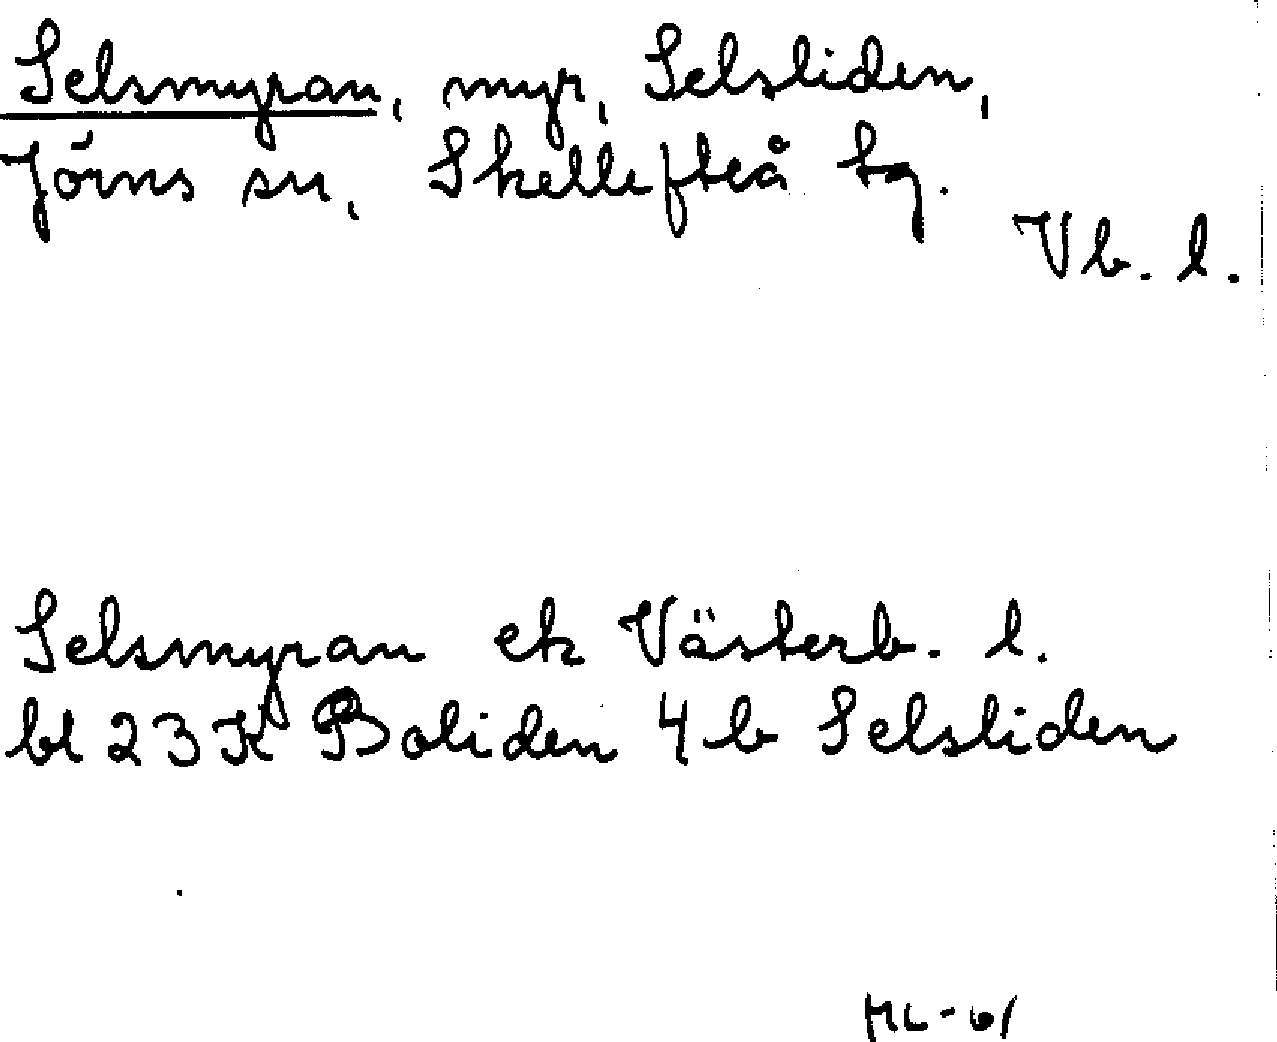 Selsmyran, myr, Selsliden,
Jörns sn, Skellefteå tg.
Vb. l.
Selsmyran ek Västerb. l.
bl 23 K Boliden 4 b Selsliden
ML-61